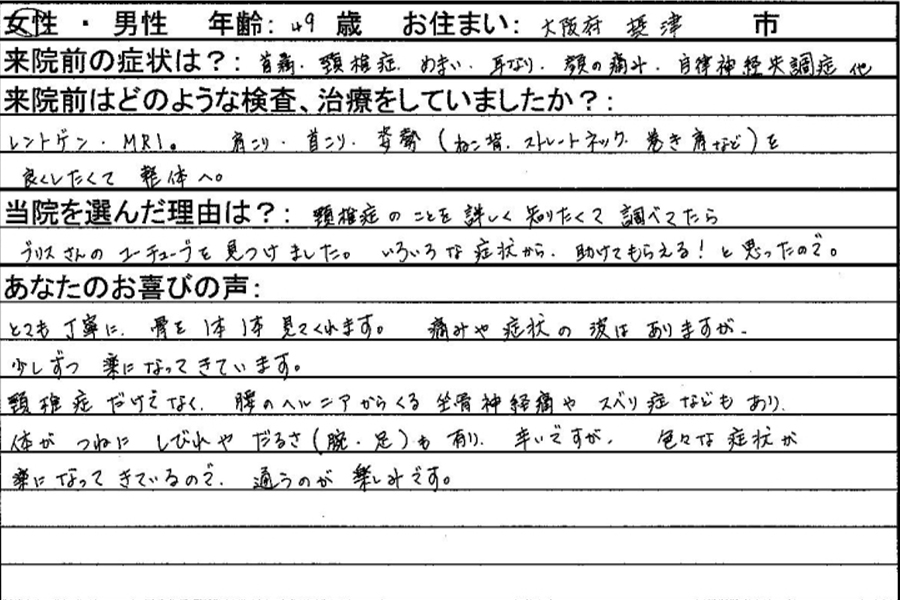 女性 ・ 男性 年齢: 49 歳 お住まい: 大阪府 摂津 市
来院前の症状は?: 首痛、頸椎症、めまい、耳なり、顎の痛み、自律神経失調症 他
来院前はどのような検査、治療をしていましたか?:
レントゲン・MRI。 肩こり・首こり・姿勢(ねこ背、ストレートネック、巻き肩など)を
良くしたくて 整体へ。
当院を選んだ理由は?: 頸椎症のことを詳しく知りたくて調べてたら
ブリスさんのユーチューブを見つけました。いろいろな症状から、助けてもらえる!と思ったので。
あなたのお喜びの声:
とても丁寧に、骨を1本1本見てくれます。 痛みや症状の波はありますが、
少しずつ 楽になってきています。
頸椎症だけでなく、腰のヘルニアからくる坐骨神経痛や スベリ症などもあり、
体が つねに しびれや だるさ(腕・足)も 有り、辛いですが、 色々な症状が
楽になってきているので、通うのが楽しみです。